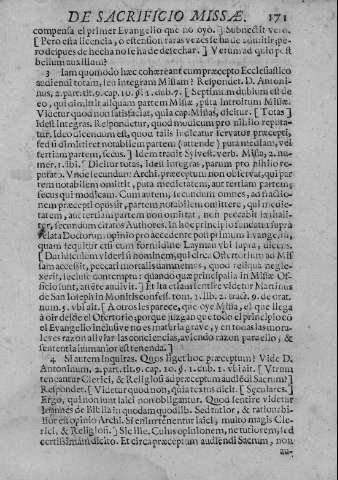 DE SACRIFICIO MISSÆ. 171
compensa el primer Evangelio que no oyò. ] Subnectit vero.
[ Pero esta licencia, o estension raras vezes se ha de admitir; pe-
ro despues de hecha no se ha de desechar. ] Verum ad quid post
bellum auxilium?
3 Iam quomodo hæc cohæreant cum præcepto Ecclesiastico
audiendi totam, seu integram Missam? Respondet. D. Antoni-
nus, 2. part. tit. 9. cap. 10. §. 1. dub. 7. [ Septimum dubium est de
eo, qui dimittit aliquam partem Missæ, puta Introitum Missæ.
Videtur quod non satisfaciat, quia cap. Missas, dicitur. [ Totas ]
Idest integras. Respondetur, quod modicum pro nihilo reputa-
tur. Ideo dicendum est, quod talis indicatur servator præcepti,
sed si dimitteret notabilem partem (attende) puta mediam, vel
tertiam partem, secus. ] Idem tradit Sylvest. verb. Missa, 2. nu-
mer. 1. ibi. [ Dicitur totas, idest integras, parum pro nihilo re-
putato. Unde secundum Archi. præceptum non observat, qui par
tem notabilem omittit, puta medietatem, aut tertiam partem;
secus qui modicam. Cum autem, secundum omnes, ad naciio-
nem præcepti opus sit, partem notabilem omittere, qui medie-
tatem, aut tertiam partem non omitat, non peccabit lethali-
ter, secundum citatos Authores. In hoc principio fundatur supra
relata Doctorum opinio pro accedente post primum Evangelium,
quam sequitur etsi cum formidine Layman ubi supra, dicens.
[ Dariscuulum videri si nominem, qui circa Offertorium ad Mis
sam accessit, peccati mortalis damnemus, quod reliqua negle-
xerit, inclute contempto: quando quæ principalia in Missæ Of-
ficio sunt, attente audivit. ] Et ita etiam sentire videtur Martinus
de San Ioseph in Monitis confess. tom. 1. lib. 2. tract. 9. de orat.
num. 5. ubi ait. [ A otros les parece, que oye Missa, el que llega
à oir desde el Ofertorio; porque juzgan que todo el principio co
el Evangelio inclusive no es materia grave, y en todas las mora-
les es razon allanar las conciencias, aviendo razon para ello, &
sententia humanior est tenenda. ]
4 Si autem inquiras. Quos liget hoc præceptum? Vide D.
Antoninum, 2. part. tit. 9. cap. 10. §. 1. dub. 1. ubi ait. [ Utrum
teneantur Clerici, & Religiosi ad præceptum audiendi Sacrum?
Respondet. [ Videtur quod non, quia textus dicit. [ Seculares. ]
Ergo, qui non sunt laici non obligantur. Quod sentire videtur
Ioannes de Biblia in quodam quodlib. Sed tutior, & rationabi-
lior est opinio Archi. Si enim tenentur laici, multo magis Cle-
rici, & Religiosi. ] Sic ille. Cuius opinionem, ne tutiorem, sed
certissimam dicito. Et circa præceptum audiendi Sacrum, non
au-